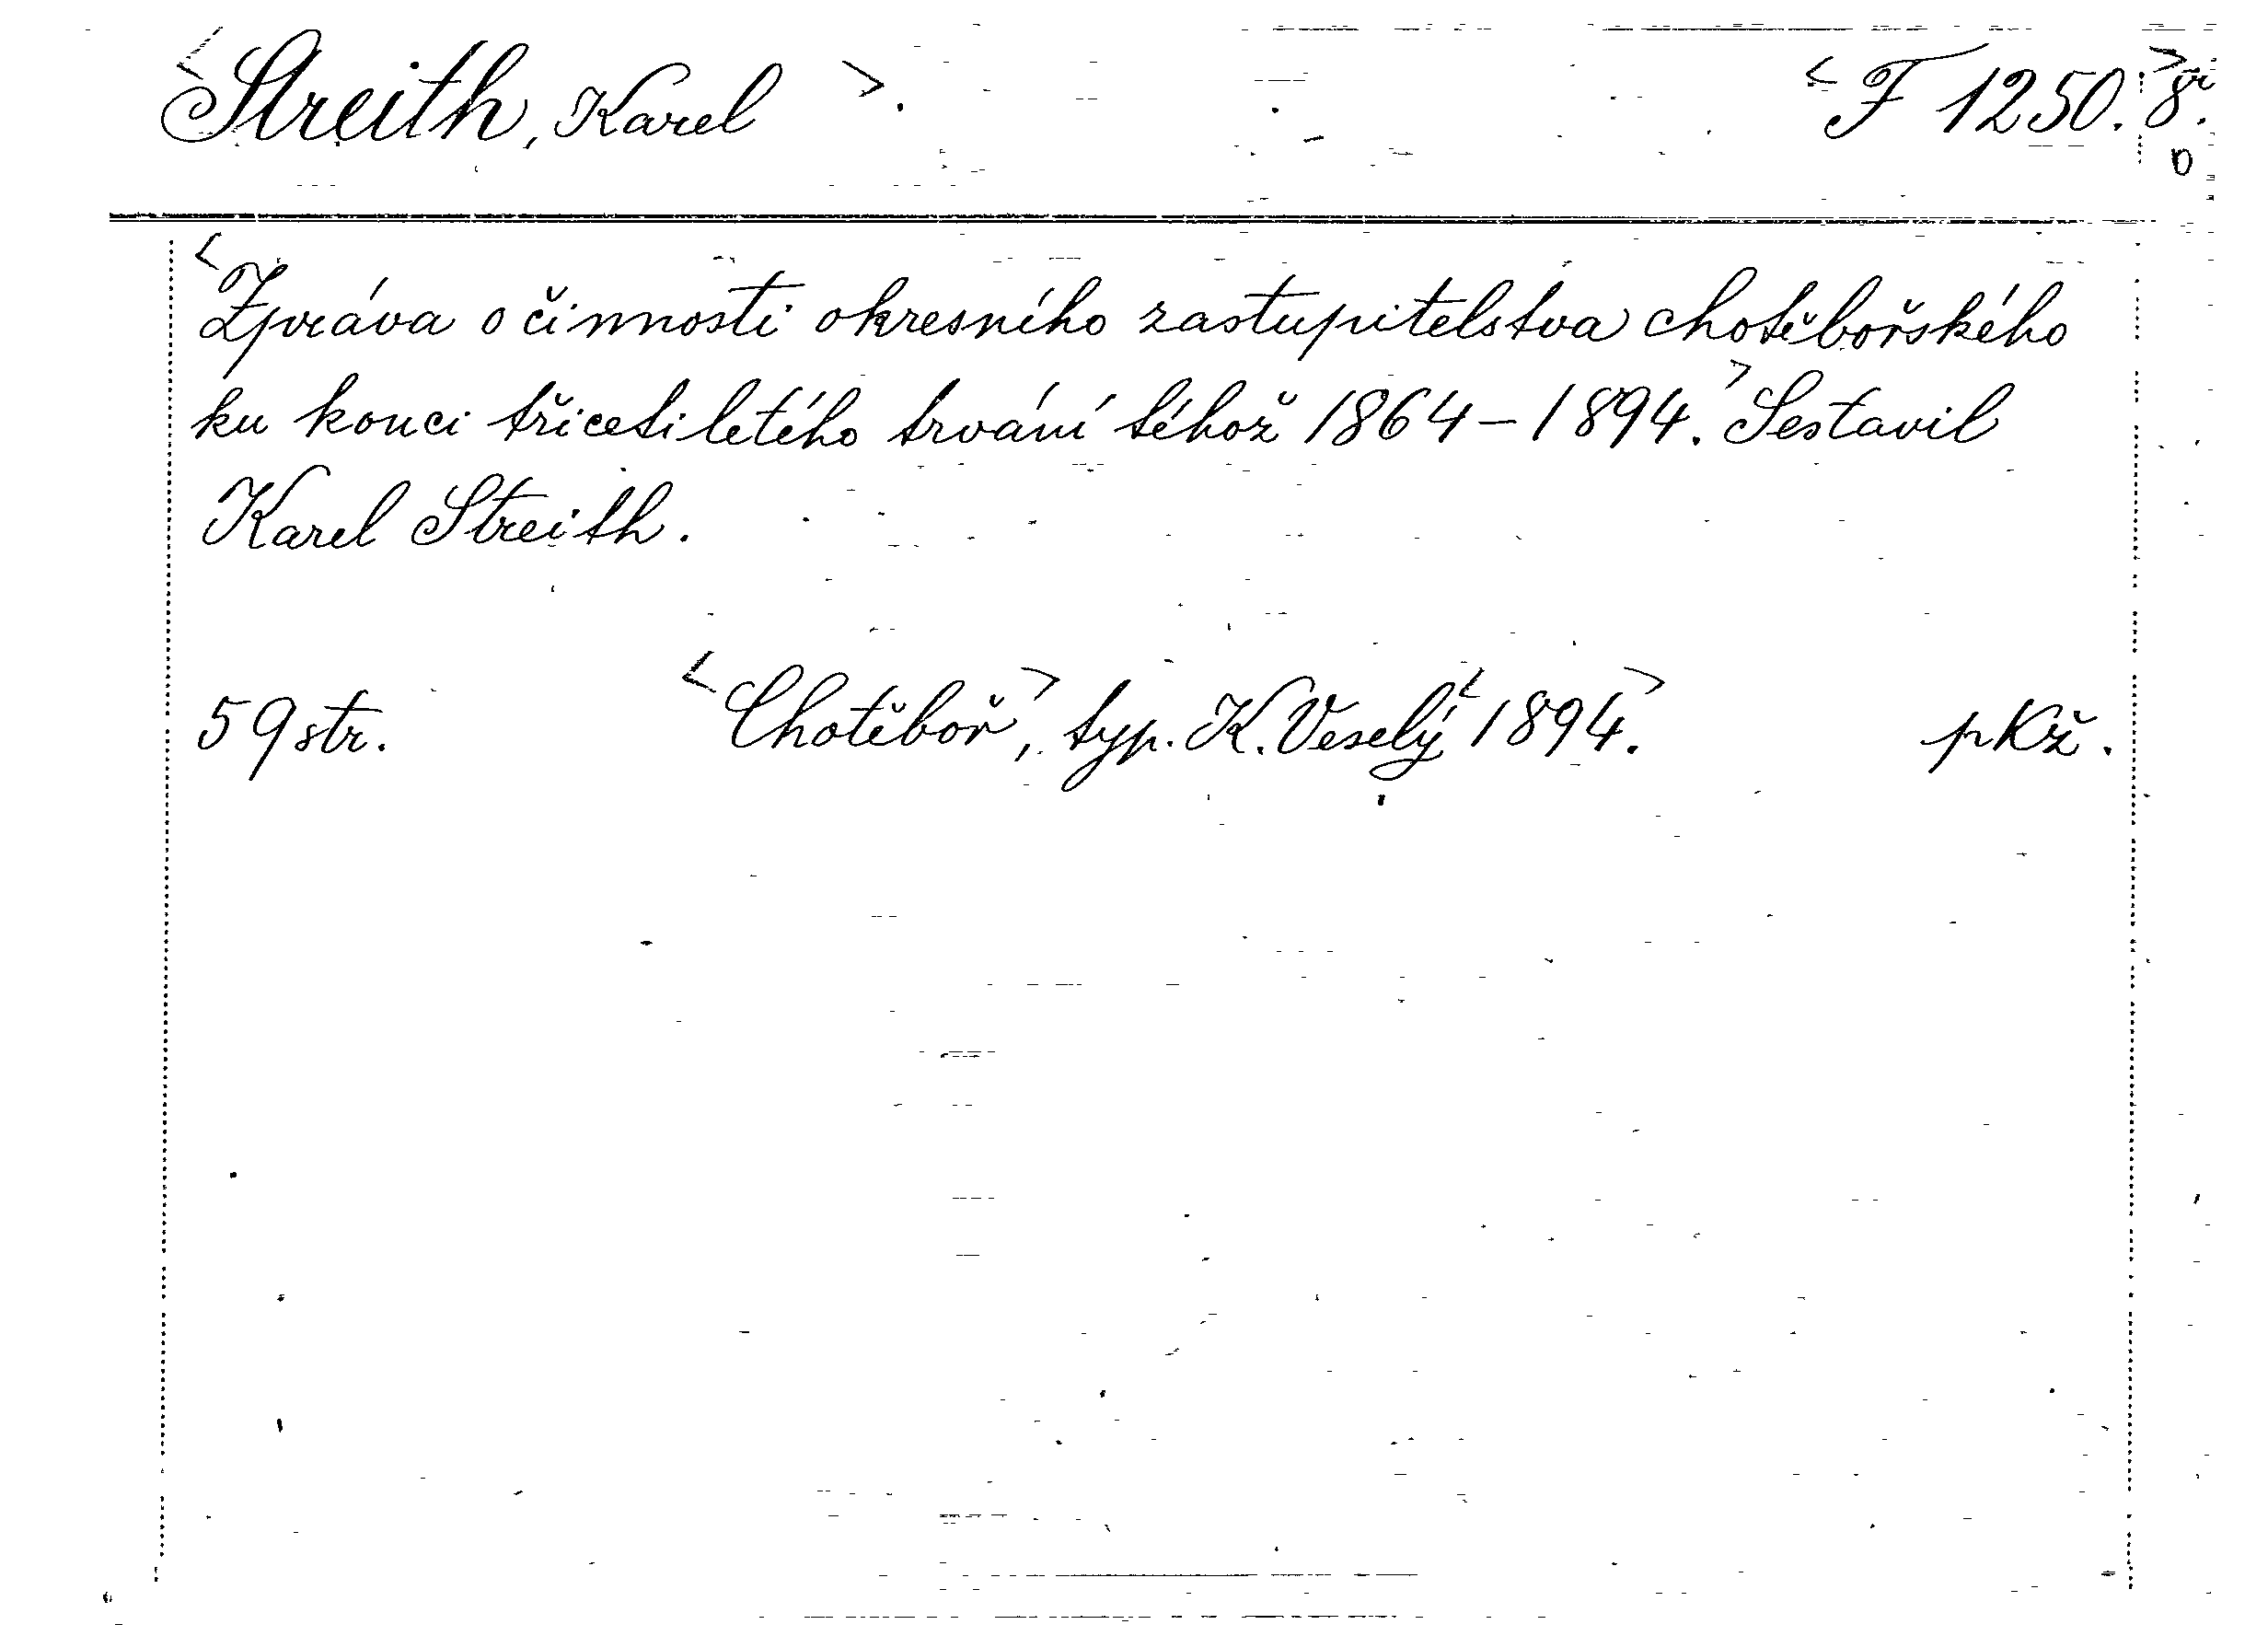 <Streith, Karel>. <F 1250.>8.
Zpráva o činnosti okresního zastupitelstva chotěbořského
ku konci třicetiletého trvání téhož 1864-1894.> Sestavil
Karel Streith.
59 str. <Chotěboř>, typ. K. Veselý <1894.> pKž.